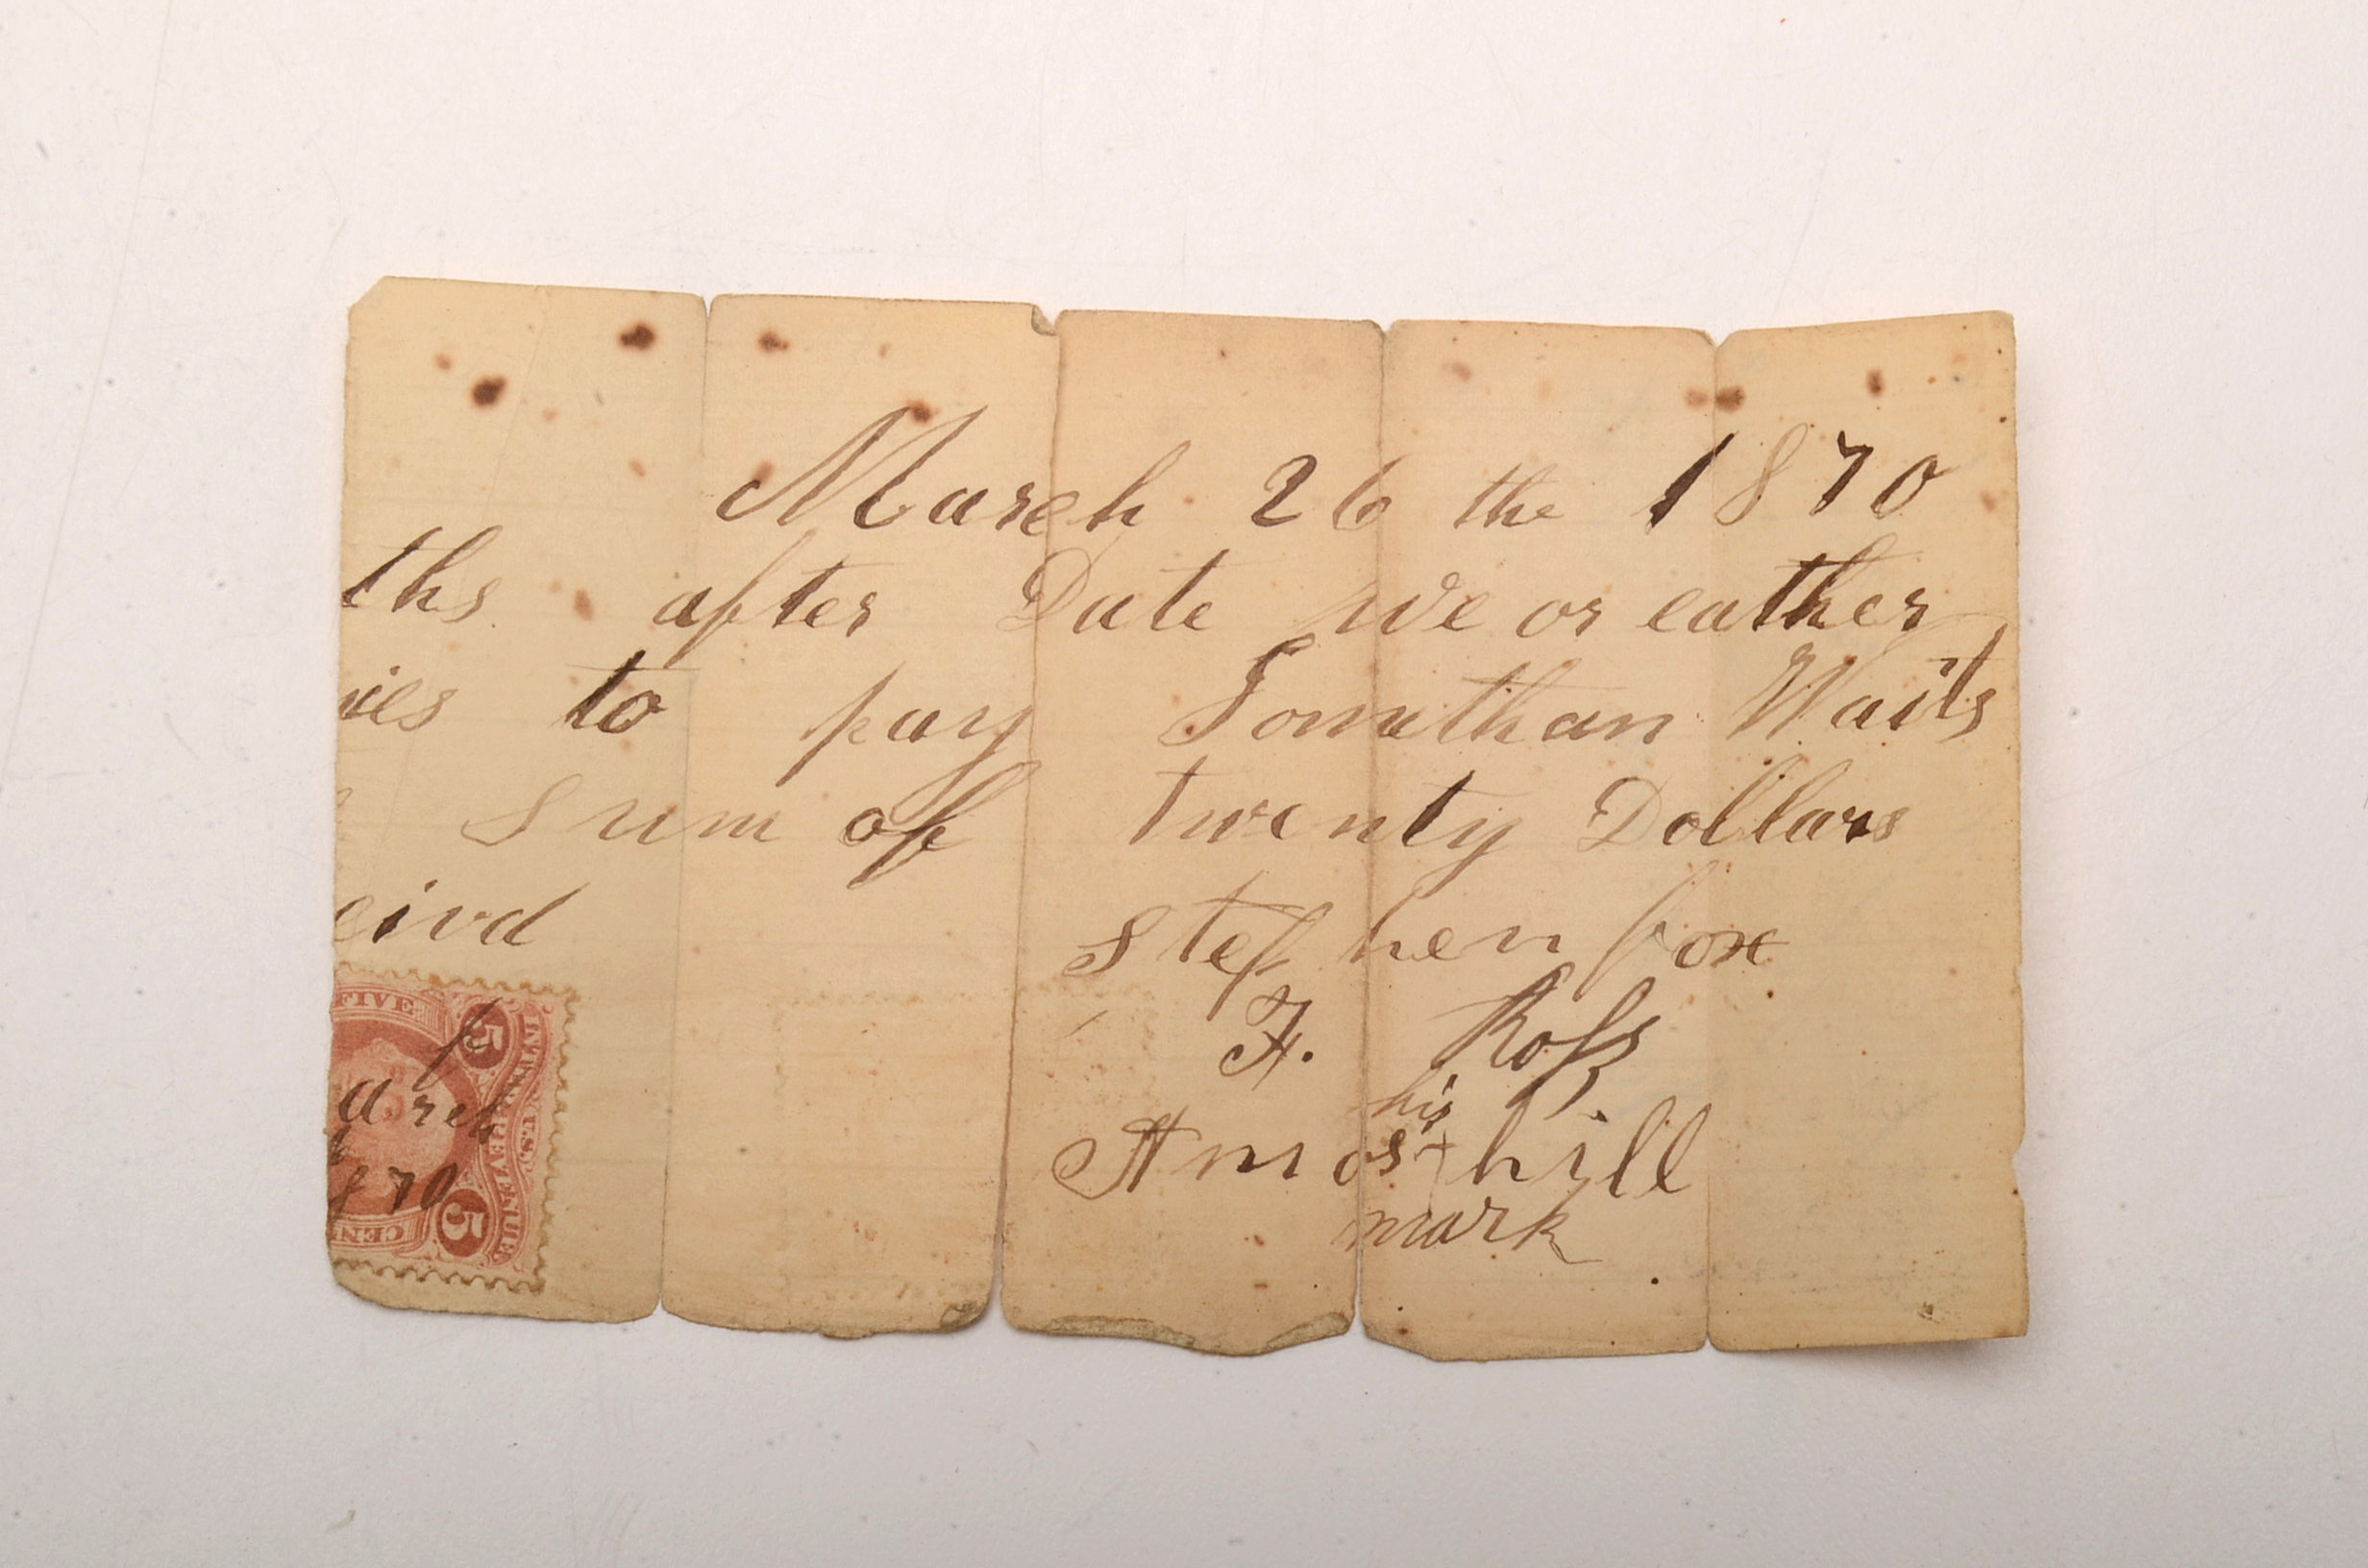 March 26 the 1870
ths after Date we or eather
ies to pay Jonathan Waits
Sum of Twenty Dollars
eivd
Stephen fox
F. Ross
his
Amos + hill
mark
FIVE
5
INTER. REVENUE
U.S.
arch
870
5
CEN